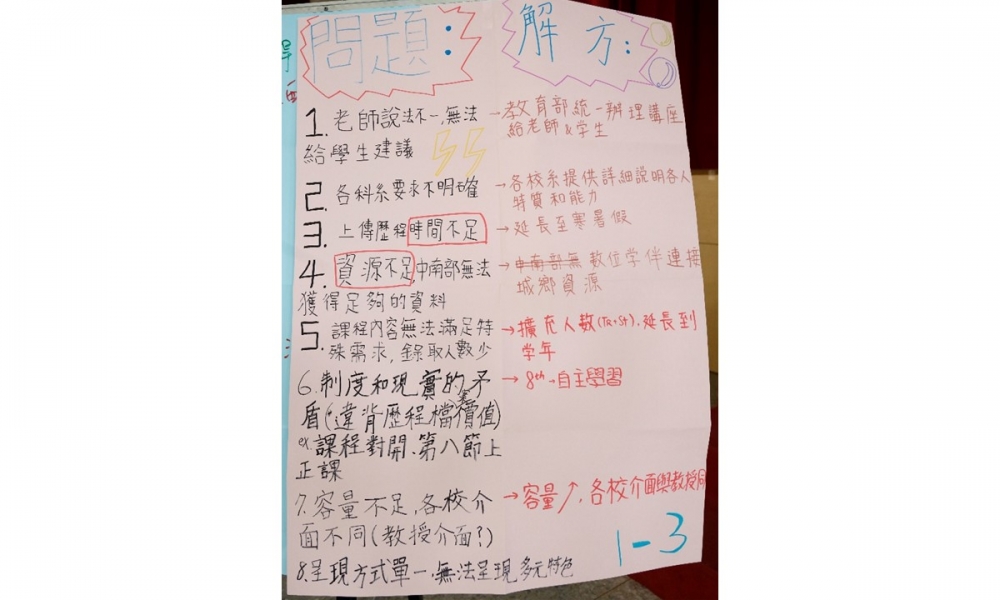 問題：
解方：
1. 老師說法不一,無法
給學生建議
→教育部統一辦理講座
給老師&学生
2. 各科系要求不明確
→各校系提供詳細說明各人
特質和能力
3. 上傳歷程時間不足
→延長至寒暑假
4. 資源不足,中南部無法
獲得足夠的資料
→中南部無數位学伴連接
城鄉資源
5. 課程內容無法滿足特
殊需求,錄取人數少
→擴充人數(TR+St).延長到
學年
6.制度和現實的矛
盾(違背歷程檔價值)
ex課程對開.第八節上
正課
→8th→自主學習
7.容量不足,各校介
面不同(教授介面?)
→容量↗,各校介面與教授同
8.呈現方式單一,無法呈現多元特色
1-3